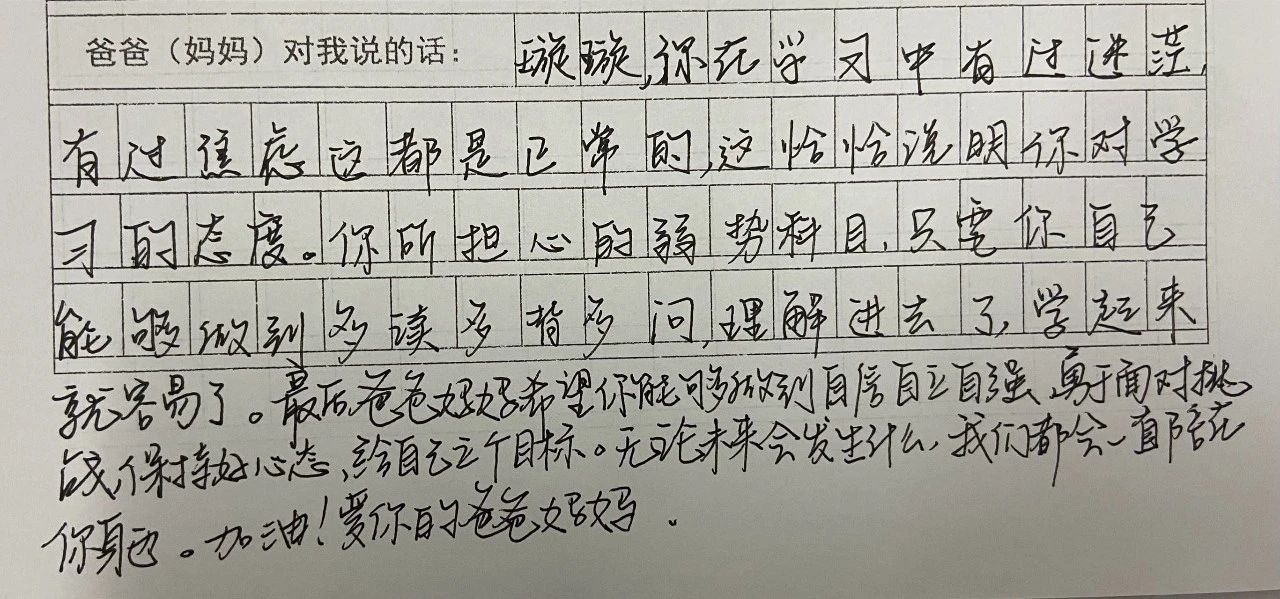 爸爸（妈妈）对我说的话：璇璇,你在学习中有过迷茫,
有过焦虑这都是正常的,这恰恰说明你对学
习的态度。你所担心的弱势科目,只需你自己
能够做到多读多背多问,理解进去了,学起来
就容易了。最后,爸爸妈妈希望你能够做到自信自立自强,勇于面对挑
战,保持好心态,给自己立个目标。无论未来会发生什么,我们都会一直陪在
你身边。加油!爱你的爸爸妈妈.